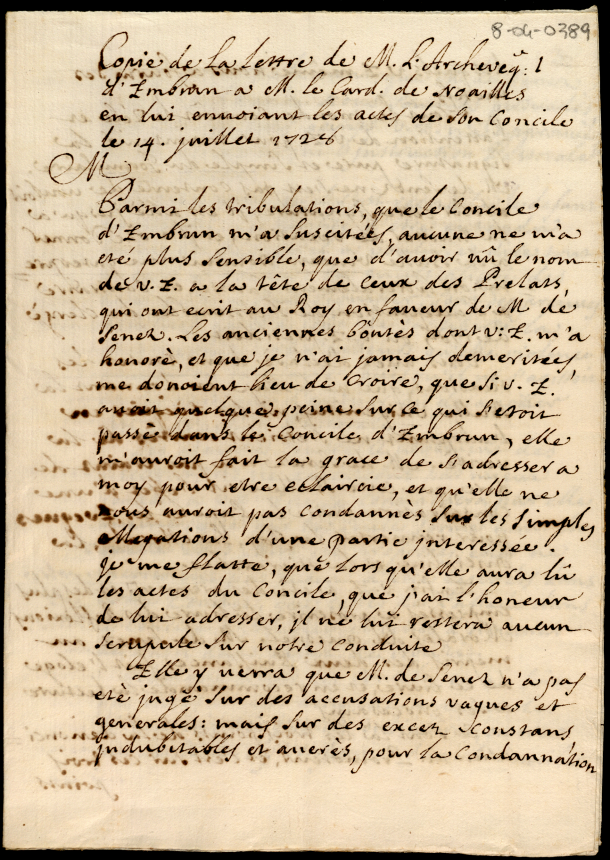 8-04-0389
Copie de la lettre de M. L'Archevêq: 
d'Embrun a M. le Card. de Noailles
en lui envoiant les actes de son Concile
le 14. juillet 1728
M
Parmi les tribulations, que le Concile
d'Embrun m'a suscitées, aucune ne m'a
eté plus sensible, que d'avoir vû le nom
de v. E. a la tête de ceux des Prelats,
qui ont ecrit au Roy en faveur de M de
Senez. Les anciennes bôntès dont v: E. m'a
honorè, et que je n'ai jamais demeritées,
me donoient lieu de croire, que si v. E.
avoit quelque peine sur ce qui s'etoit
passè dans le Concile d'Embrun, elle
m'auroit fait la grace de s'adresser a
moy pour etre eclaircie, et qu'elle ne
nous auroit pas condannès sur les simples
allegations d'une partie interessée.
je me flatte, que lors qu'elle aura lû
les actes du Concile, que j'ai l'honeur
de lui adresser, il ne lui restera aucun
scrupule sur notre conduite
Elle y verra que M. de Senez n'a pas
etè jugè sur des accusations vagues et
generales: mais sur des excez constans
indubitables et averès, pour la condannation